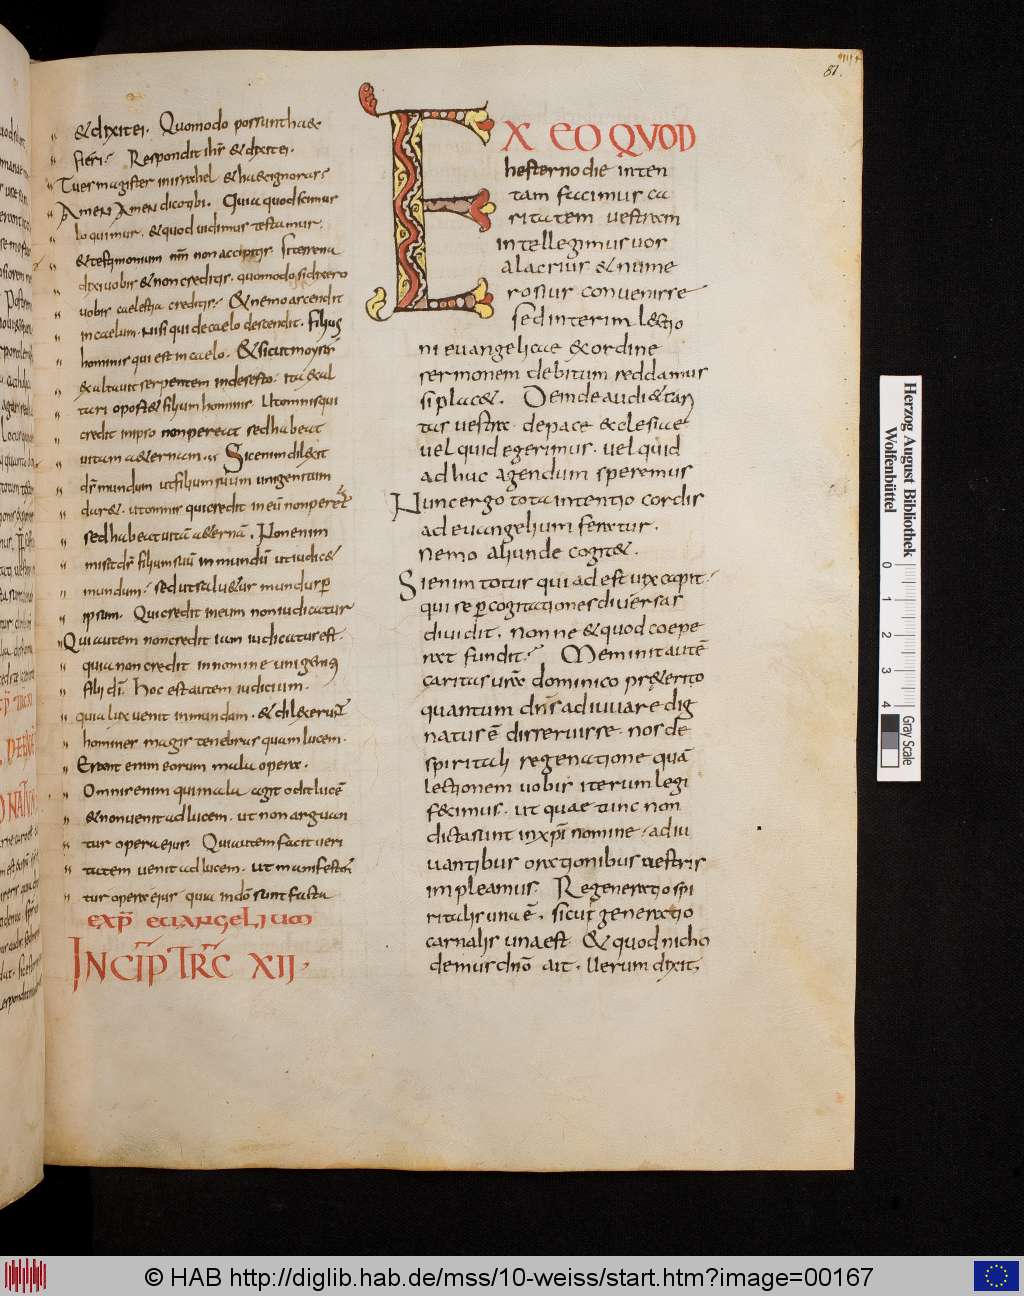 81.
& dixit ei. Quomodo possunt haec
fieri? Respondit ihs & dixit ei.
Tu es magister in isrl & haec ignoras
Amen Amen dico tibi. Quia quod scimus
loquimur. & quod uidimus testamur.
& testimonium nrm non accipitis. Si terrena
dixi uobis & non creditis. quomodo si dixero
uobis caelestia creditis? & nemo ascendit
in caelum. nisi qui de caelo descendit. filius
hominis qui est in caelo. & sicut moyses
exaltauit serpentem in deserto. ita exal
tari oport& filium hominis. Ut omnis qui
credit in ipso non pereat sed habeat
uitam a&ernam. Sic enim dilexit
ds mundum ut filium suum unigenitum
dar&. ut omnis qui credit in eum non pereat
sed habeat uitā a&ernā. Non enim
misit ds filium suū in mundū ut iudic&
mundum. sed ut salu&ur mundus p
ipsum. Qui credit in eum non iudicatur
Qui autem non credit iam iudicatus est.
quia non credit in nomine unigeniti
filii di. Hoc est autem iudicium.
quia lux uenit in mundum. & dilexerunt
homines magis tenebras quam lucem.
Erant enim eorum mala opera.
Omnis enim qui mala agit odit lucē
& non uenit ad lucem. ut non arguan
tur opera eius. Qui autem facit ueri
tatem uenit ad lucem. ut manifesten
tur opera eius quia in dō sunt facta
EXP EUANGELIUM
INCIP TRC XII.
EX EO QVOD
hesterno die inten
tam facimus ca
ritatem uestram
intellegimus uos
alacrius & nume
rosius conuenisse
sed interim lectio
ni euangelicae ex ordine
sermonem debitum reddamus
si plac&. Deinde audi&
tas uestra. de pace ecclesiae
uel quid egerimus. uel quid
adhuc agendum speremus
Nunc ergo tota intentio cordis
ad euangelium feratur.
nemo aliunde cogit&.
Si enim totus qui adest uix capit.
qui se p cogitationes diuersas
diuidit. nonne & quod coepe
rat fundit? Meminit autē
caritas ura dominico pr&erito
quantum dns adiuuare dig
natus ē disseruisse. nos de
spiritali regeneratione quā
lectionem uobis iterum legi
fecimus. ut quae tunc non
dicta sunt in xpi nomine. adiu
uantibus orationibus uestris
impleamus. Regeneratio spi
ritalis una ē. sicut generatio
carnalis una est. & quod nicho
demus dnō ait. uerum dixit.
Herzog August Bibliothek
Wolfenbüttel
0 1 2 3 4
Gray Scale
© HAB http://diglib.hab.de/mss/10-weiss/start.htm?image=00167